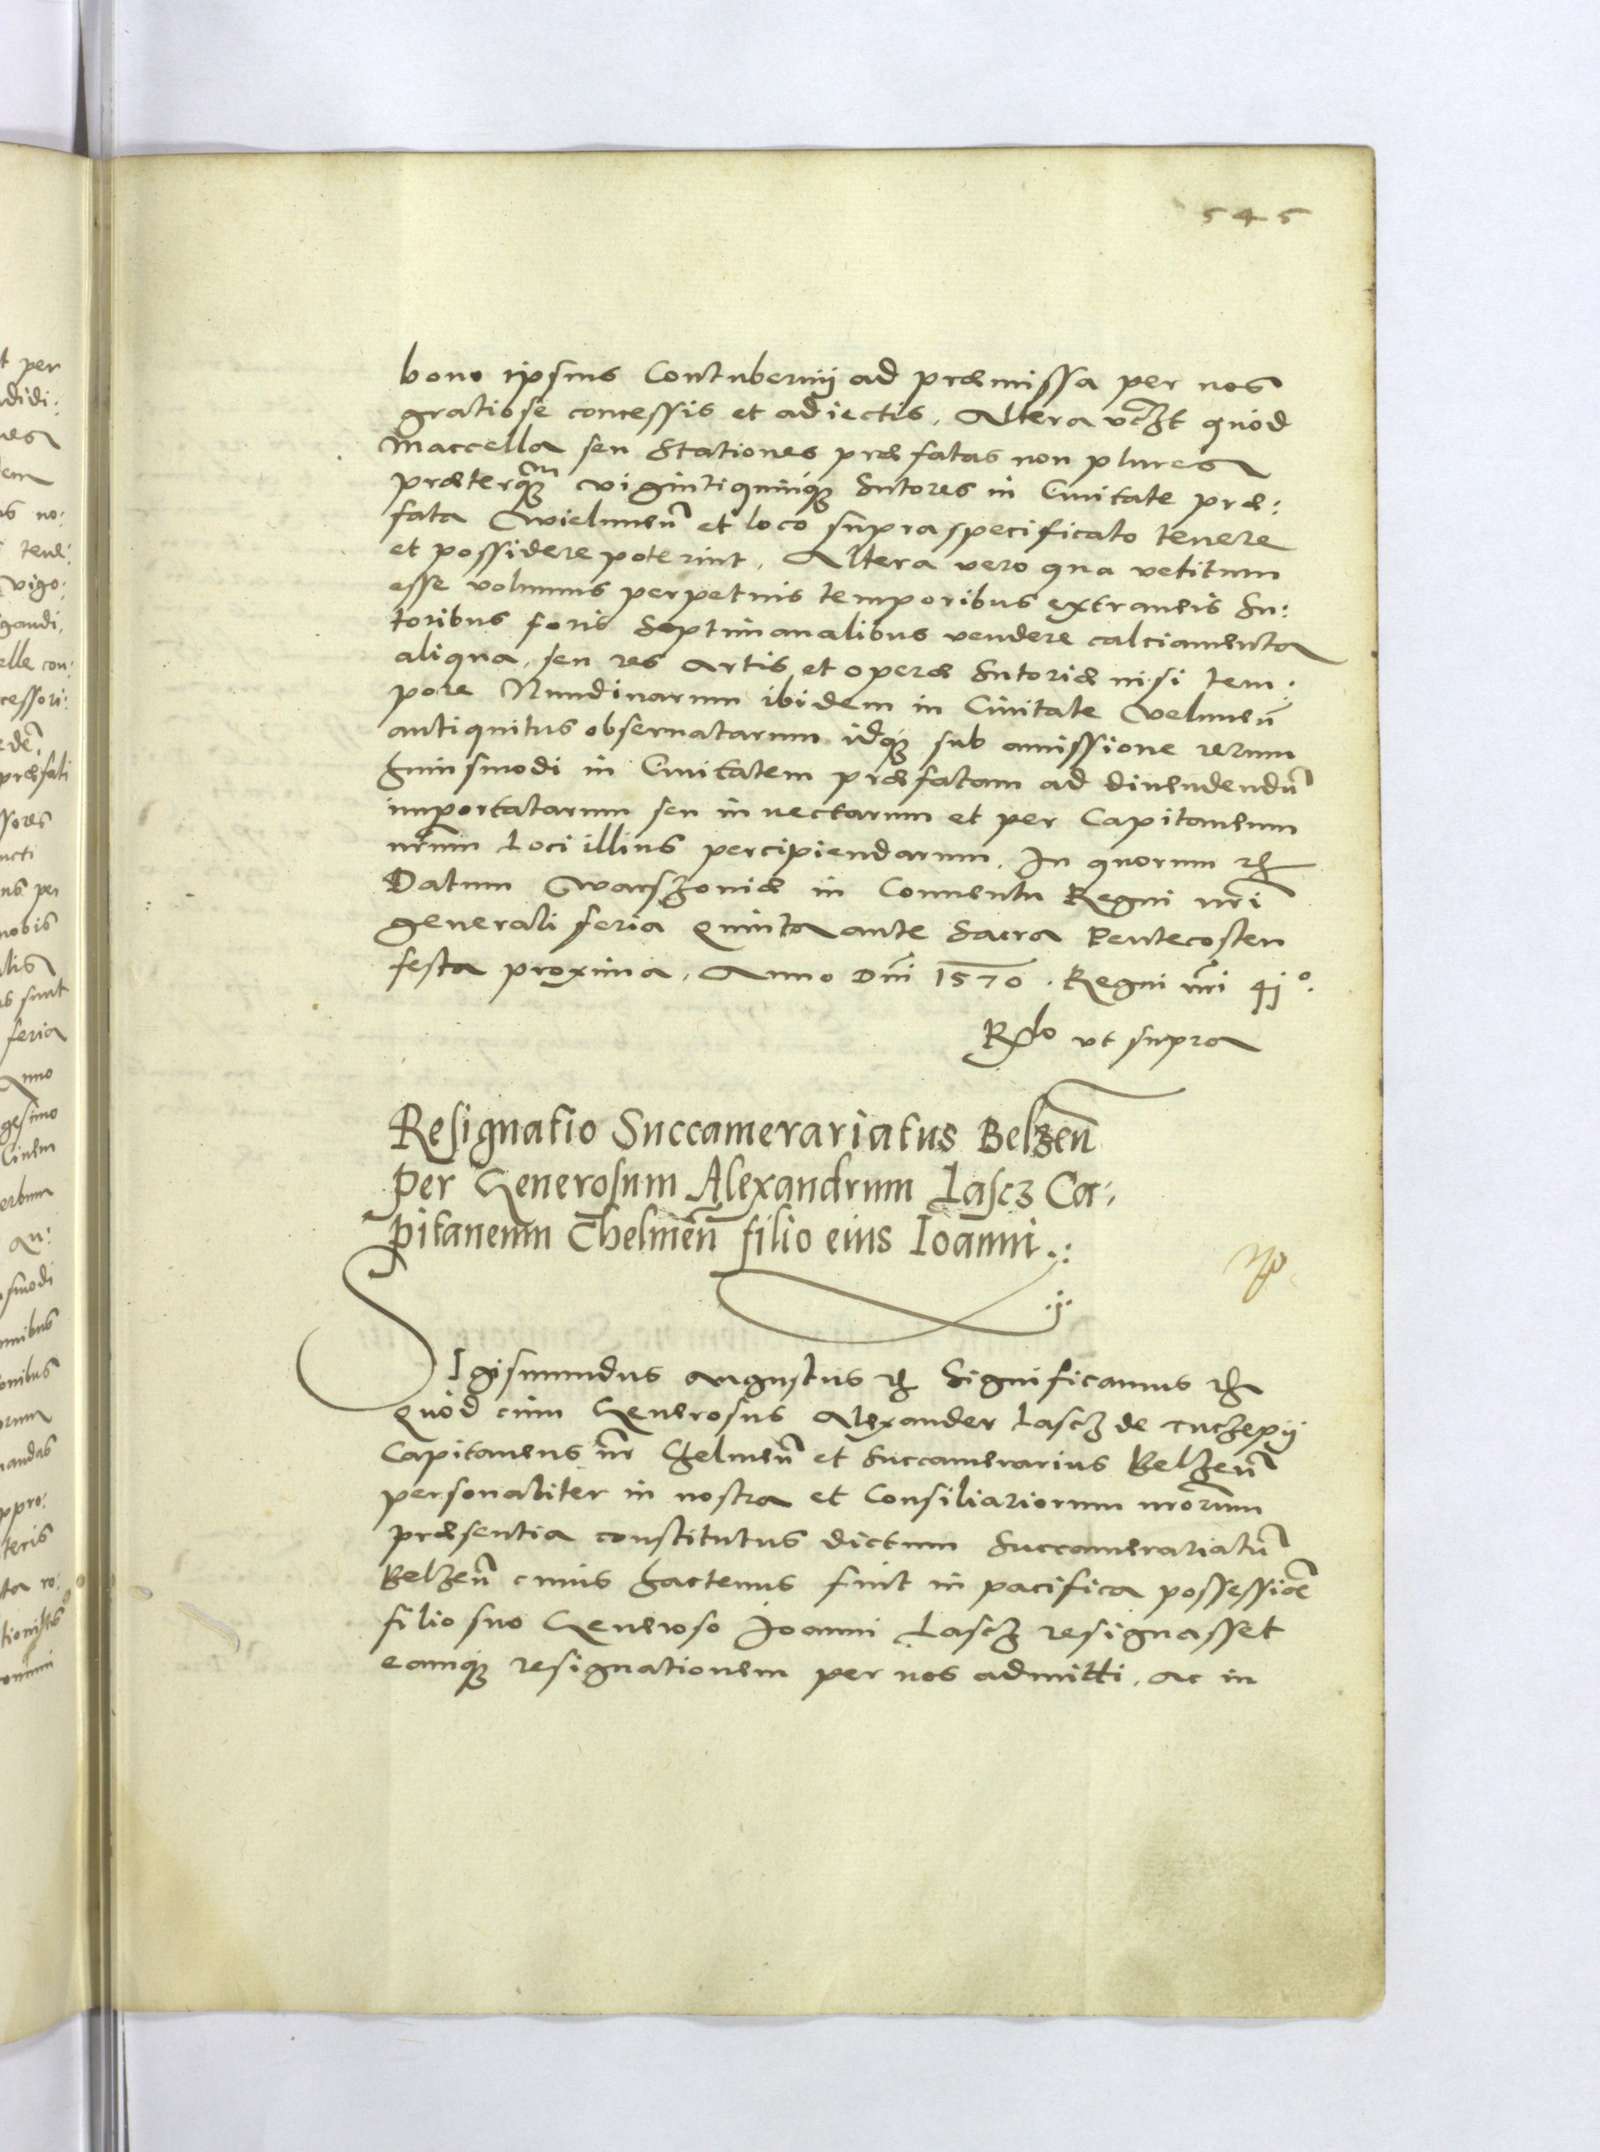 545
bono ipsius Contubernij ad præmissa per nos
gratiose concessis et adiectis. Altera vczt quòd
maccella seu Stationes præfatas non plures
præterqm̃ vigintiquinq; Sutores in Ciuitate præ:
fata Wielunen̄ et loco supraspecificato tenere
et possidere poterint. Altera vero qua vetitum
esse volumus perpetuis temporibus extraneis Su:
toribus foris Septimanalibus vendere calciamenta
aliqua, seu res artis et operæ Sutoriæ nisi tem:
pore Nundinarum ibidem in Ciuitate Velunen̄
antiquitus obseruatarum idq; sub amissione rerum
huiusmodi in Ciuitatem præfatam ad diuendendū
importatarum seu inuectarum et per Capitaneum
nr̄um Loci illius percipiendarum. In quorum rz
Datum Warszouiæ in Conuentu Regni nr̄i
generali feria quinta ante Sacra Pentecosten
festa proxima. Anno Dn̄i 1570. Regni nr̄i 41°.
Rdo vt supra
Resignatio Succamerariatus Belzen̄
per Generosum Alexandrum Lascz Ca:
pitaneum Chelmen̄ filio eius Ioanni.:
Sigismundus Augustus rz Significamus rz
Quòd cùm Generosus Alexander Lascz de Tuczepÿ
Capitaneus nr̄ Chelmen̄ et Succamerarius Belzen̄
personaliter in nostra et Consiliariorum nr̄orum
præsentia constitutus dictum Succamerariatū
Belzen̄ cuius hactenus fuit in pacifica possessiōe
filio suo Generoso Joanni Lascz resignasset
eamq; resignationem per nos admitti, ac in